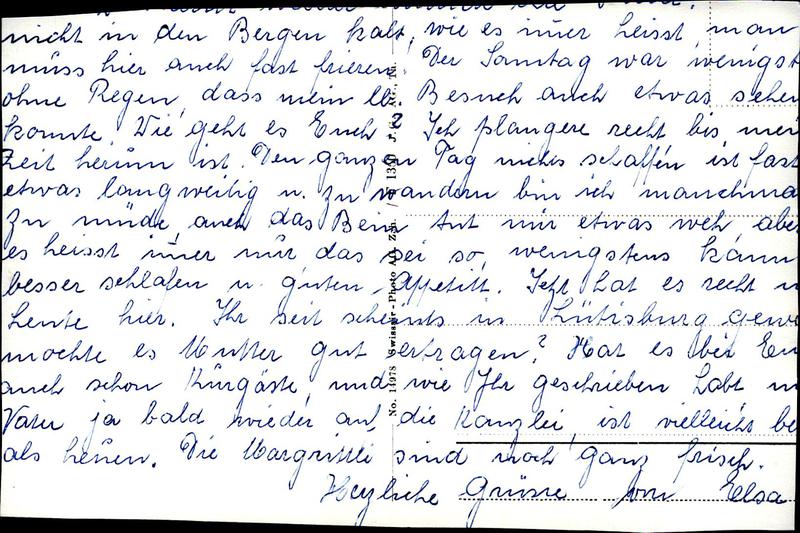 nicht in den Bergen kalt, wie es imer heisst man
müss hier auch fast frieren. Der Samstag war wenigst
ohne Regen, dass mein lb. Besuch auch etwas sehen
konnte. Wie geht es Euch? Ich plangere recht bis mei
Zeit herum ist. Den ganzen Tag nichts schaffen ist fast
etwas langweilig u. zu wandern bin ich manchma
zu müde, auch das Bein tut mir etwas weh, aber
es heisst imer nur das sei so, wenigstens kann
besser schlafen u. guten Appetitt. Jetzt hat es recht
Leute hier. Ihr seit scheints in Lütisburg gewe
mochte es Mutter gut ertragen? Hat es bei Eu
auch schon Kurgäste, und wie Ihr geschrieben habt
Vater ja bald wieder auf die Kanzlei, ist vielleicht be
als heuen. Die Margrittli sind noch ganz frisch.
Herzliche Grüsse von Elsa
No. 14978 Swissair-Photo AG. Zch.